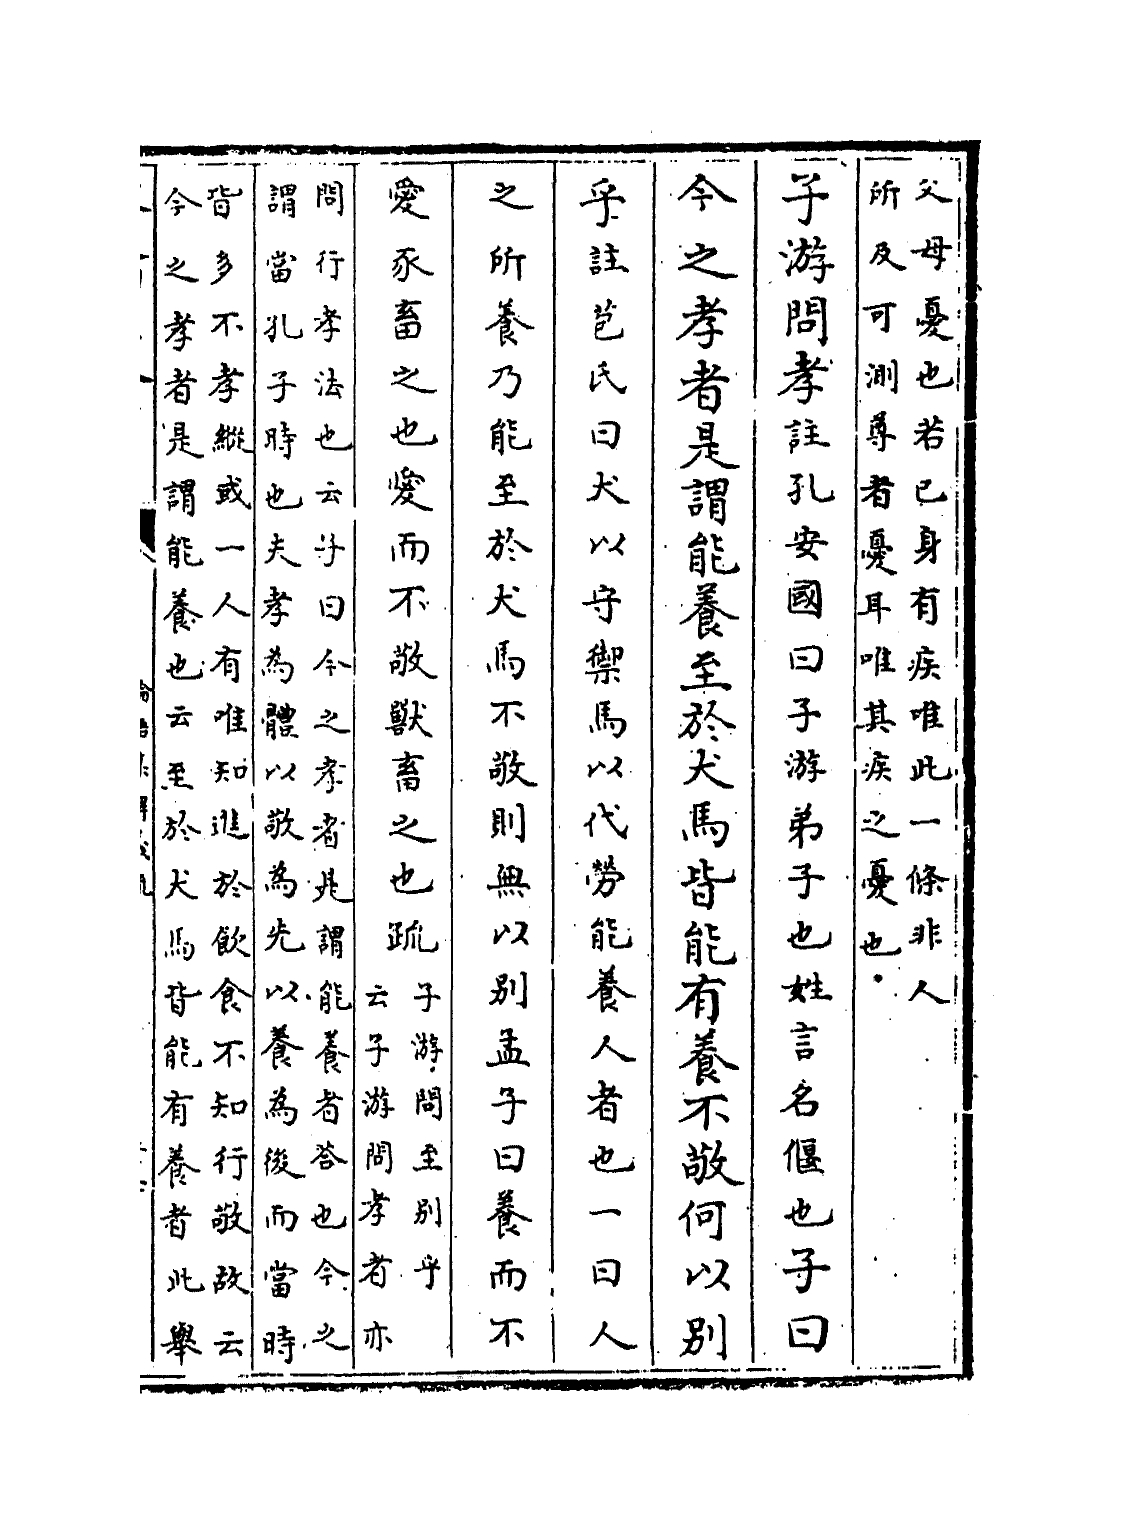 父母憂也若己身有疾唯此一條非人
所及可測尊者憂耳唯其疾之憂也
子游問孝註孔安國曰子游弟子也姓言名偃也子曰
今之孝者是謂能養至於犬馬皆能有養不敬何以別
乎註苞氏曰犬以守禦馬以代勞能養人者也一曰人
之所養乃能至於犬馬不敬則無以別孟子曰養而不
愛豕畜之也愛而不敬獸畜之也疏
子游問至別乎
云子游問孝者亦
問行孝法也云子曰今之孝者是謂能養者荅也今之
謂當孔子時也夫孝為體以敬為先以養為後而當時
皆多不孝縱或一人有唯知進於飲食不知行敬故云
今之孝者是謂能養也云至於犬馬皆能有養者此舉